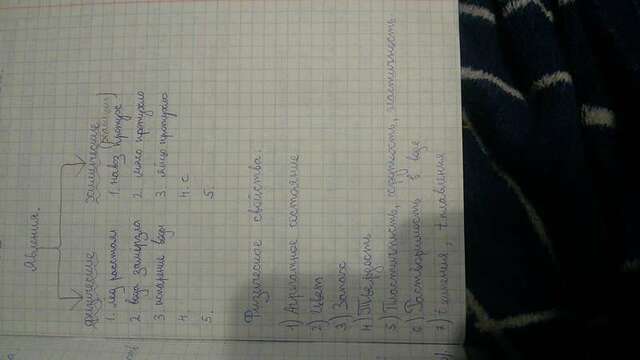 Явления.
физические химические
(реакции)
1. лёд растаял 1. навоз протух
2. вода замерзла 2. мясо протухло
3. испарение воды 3. яйцо протухло
4. 4. с
5. 5.
Физическое свойства:
1) Агрегатное состояние
2) Цвет
3) Запах
4) Твердость
5) Пластичность, хрупкость, эластичность
6) Растворимость в воде
7) t кипения, t плавления